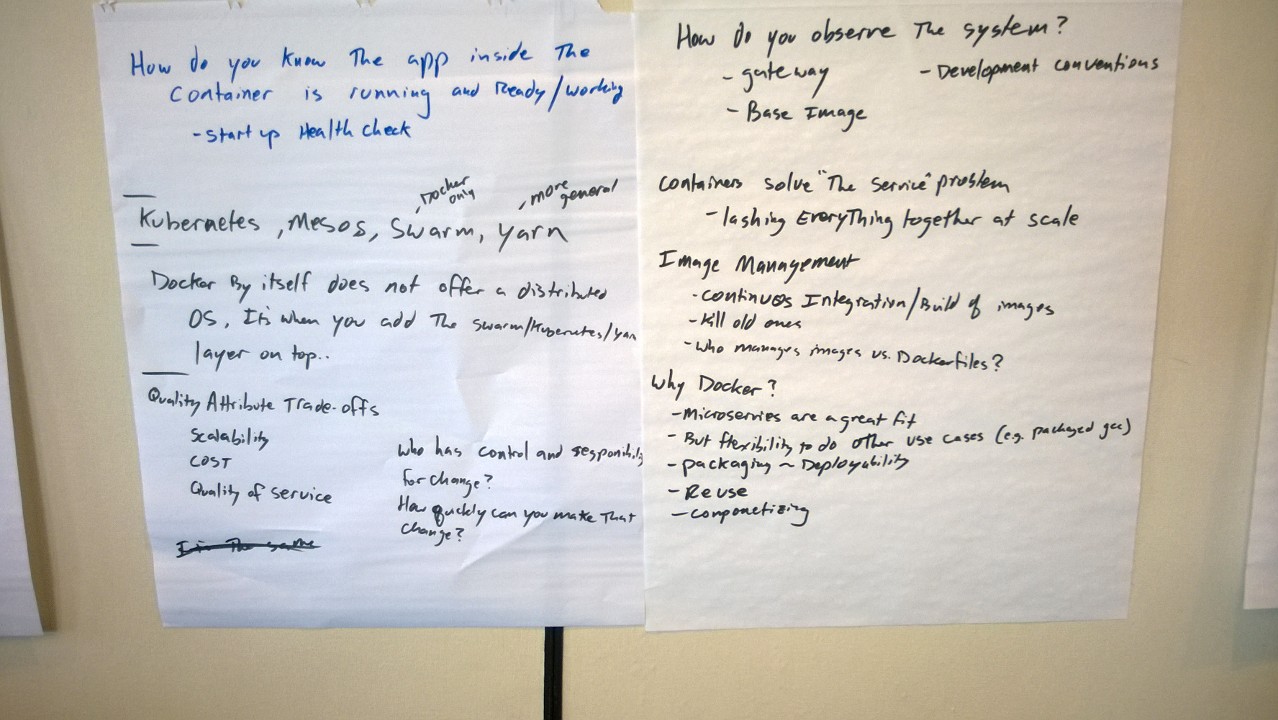 How do you know The app inside The
container is running and Ready/working
- start up Health check
, Docker only
, more general
Kubernetes , Mesos, Swarm, yarn
Docker By itself does not offer a distributed
OS, It's when you add The swarm/Kubernetes/yarn
layer on top..
Quality Attribute Trade-offs
Scalability
COST
Quality of service
who has control and responsibility
for change?
How quickly can you make That
change?
How do you observe The system?
- gateway
- Development conventions
- Base Image
containers solve "The service" problem
- lashing EveryThing together at scale
Image Management
- continuos Integration/Build of images
- Kill old ones
- who manages images vs. Dockerfiles?
why Docker?
- Microservies are a great fit
- But flexibility to do other use cases (e.g. packaged gcc)
- packaging ~ Deployability
- Reuse
- componetizing